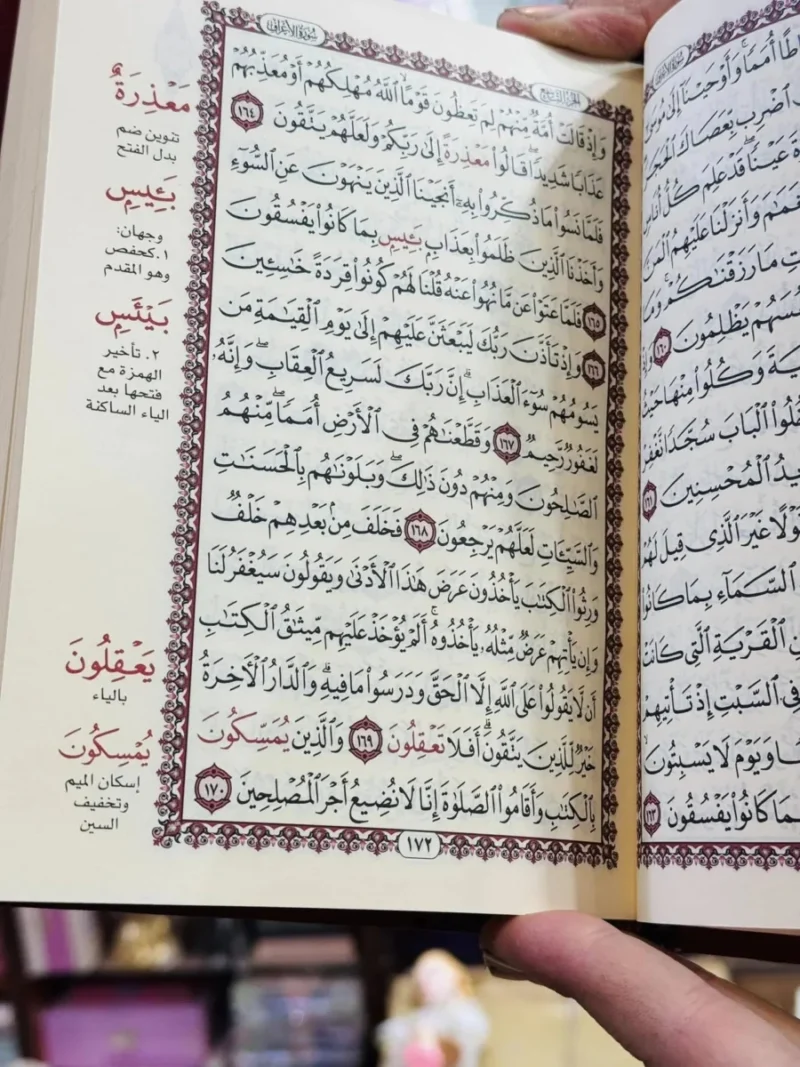 سُورَةُ الأَعْرَافِ
الجُزْءُ التَّاسِعُ
وَإِذْ قَالَتْ أُمَّةٌ مِّنْهُمْ لِمَ تَعِظُونَ قَوْمًا ۙ اللَّهُ مُهْلِكُهُمْ أَوْ مُعَذِّبُهُمْ
عَذَابًا شَدِيدًا ۖ قَالُوا مَعْذِرَةً إِلَىٰ رَبِّكُمْ وَلَعَلَّهُمْ يَتَّقُونَ ١٦٤
فَلَمَّا نَسُوا مَا ذُكِّرُوا بِهِ أَنجَيْنَا الَّذِينَ يَنْهَوْنَ عَنِ السُّوءِ
وَأَخَذْنَا الَّذِينَ ظَلَمُوا بِعَذَابٍ بَئِيسٍ بِمَا كَانُوا يَفْسُقُونَ
١٦٥ فَلَمَّا عَتَوْا عَن مَّا نُهُوا عَنْهُ قُلْنَا لَهُمْ كُونُوا قِرَدَةً خَاسِئِينَ
١٦٦ وَإِذْ تَأَذَّنَ رَبُّكَ لَيَبْعَثَنَّ عَلَيْهِمْ إِلَىٰ يَوْمِ الْقِيَامَةِ مَن
يَسُومُهُمْ سُوءَ الْعَذَابِ ۗ إِنَّ رَبَّكَ لَسَرِيعُ الْعِقَابِ ۖ وَإِنَّهُ
لَغَفُورٌ رَّحِيمٌ ١٦٧ وَقَطَّعْنَاهُمْ فِي الْأَرْضِ أُمَمًا ۖ مِّنْهُمُ
الصَّالِحُونَ وَمِنْهُمْ دُونَ ذَٰلِكَ ۖ وَبَلَوْنَاهُم بِالْحَسَنَاتِ
وَالسَّيِّئَاتِ لَعَلَّهُمْ يَرْجِعُونَ ١٦٨ فَخَلَفَ مِن بَعْدِهِمْ خَلْفٌ
وَرِثُوا الْكِتَابَ يَأْخُذُونَ عَرَضَ هَٰذَا الْأَدْنَىٰ وَيَقُولُونَ سَيُغْفَرُ لَنَا
وَإِن يَأْتِهِمْ عَرَضٌ مِّثْلُهُ يَأْخُذُوهُ ۚ أَلَمْ يُؤْخَذْ عَلَيْهِم مِّيثَاقُ الْكِتَابِ
أَن لَّا يَقُولُوا عَلَى اللَّهِ إِلَّا الْحَقَّ وَدَرَسُوا مَا فِيهِ ۗ وَالدَّارُ الْآخِرَةُ
خَيْرٌ لِّلَّذِينَ يَتَّقُونَ ۗ أَفَلَا تَعْقِلُونَ ١٦٩ وَالَّذِينَ يُمَسِّكُونَ
بِالْكِتَابِ وَأَقَامُوا الصَّلَاةَ إِنَّا لَا نُضِيعُ أَجْرَ الْمُصْلِحِينَ ١٧٠
١٧٢
مَعْذِرَةٌ
تنوين ضم
بدل الفتح
بَئِيسٍ
وجهان:
١. كحفص
وهو المقدم
بَيْئَسٍ
٢. تأخير
الهمزة مع
فتحها بعد
الياء الساكنة
يَعْقِلُونَ
بالياء
يُمْسِكُونَ
إسكان الميم
وتخفيف
السين
أُمَمًا ۚ وَأَوْحَيْنَا إِلَىٰ
اضْرِب بِّعَصَاكَ الْحَجَرَ
عَيْنًا ۖ قَدْ عَلِمَ كُلُّ
وَأَنزَلْنَا عَلَيْهِمُ
مَا رَزَقْنَاكُمْ ۚ
يَظْلِمُونَ ١٦٠
وَكُلُوا مِنْهَا
الْبَابَ سُجَّدًا
الْمُحْسِنِينَ ١٦١
غَيْرَ الَّذِي قِيلَ
السَّمَاءِ بِمَا
الْقَرْيَةِ الَّتِي
فِي السَّبْتِ إِذْ
وَيَوْمَ لَا يَسْبِتُونَ
كَانُوا يَفْسُقُونَ ١٦٣